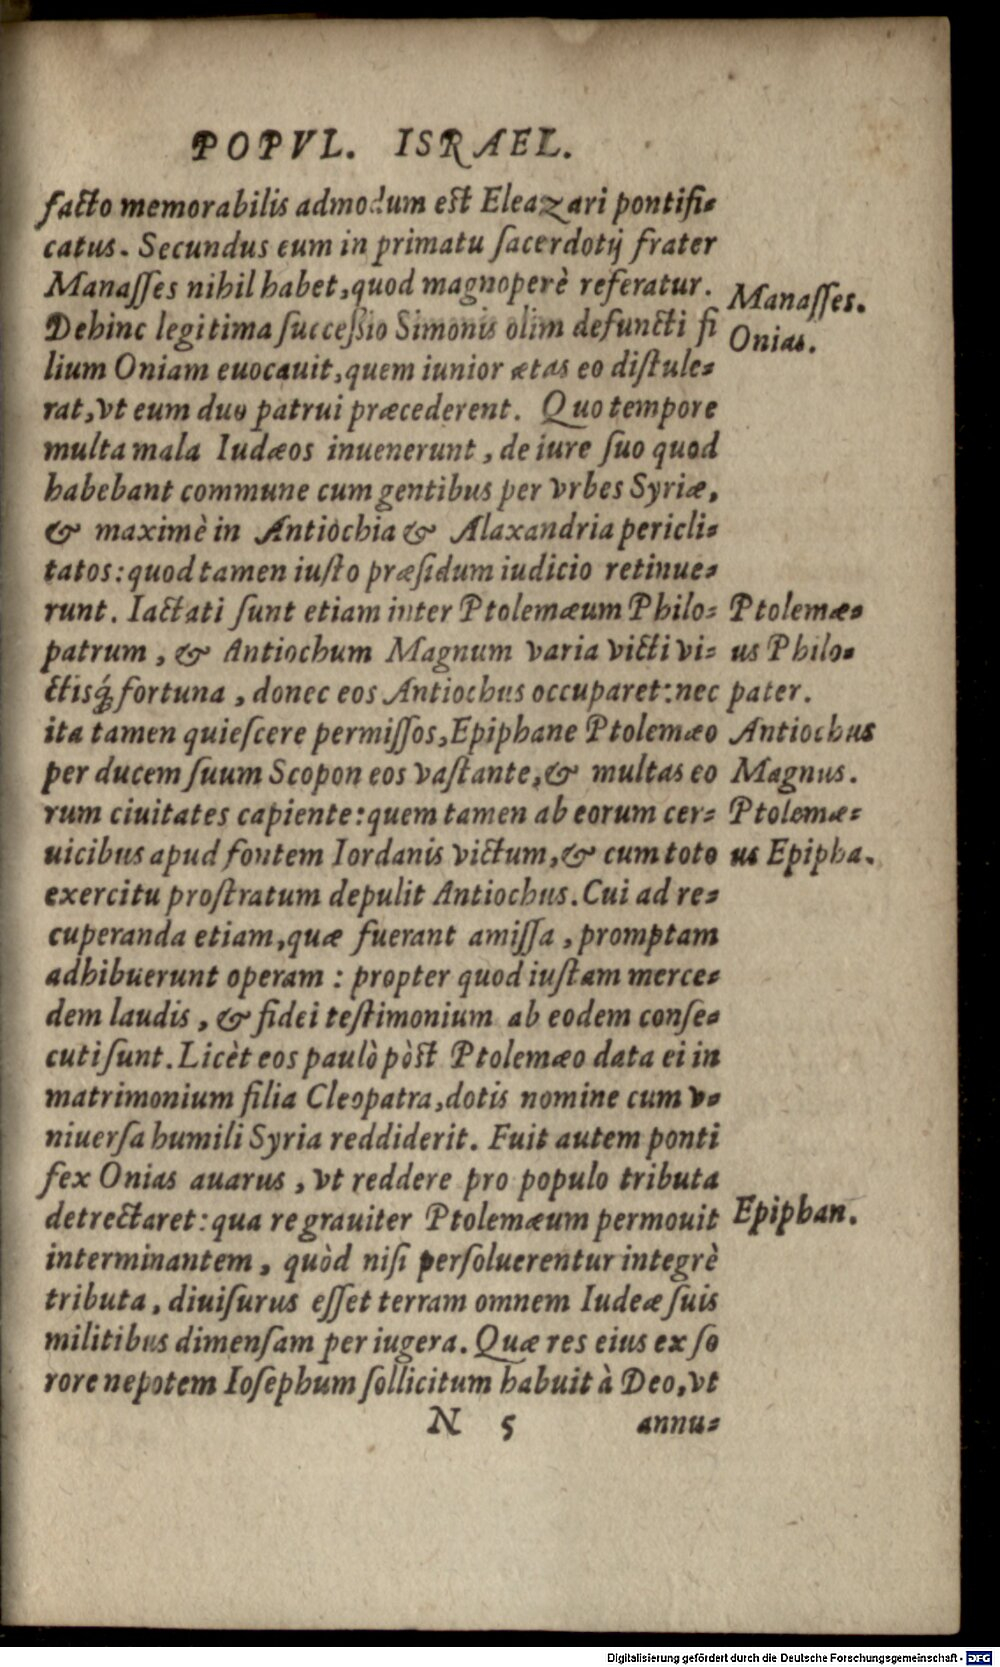 POPVL. ISRAEL.
facto memorabilis admodum est Eleazari pontifi=
catus. Secundus eum in primatu sacerdotij frater
Manasses nihil habet, quod magnoperè referatur.
Dehinc legitima successio Simonis olim defuncti fi
lium Oniam euocauit, quem iunior ætas eo distule=
rat, vt eum duo patrui præcederent. Quo tempore
multa mala Iudæos inuenerunt, de iure suo quod
habebant commune cum gentibus per vrbes Syriæ,
& maximè in Antiochia & Alaxandria pericli=
tatos: quod tamen iusto præsidum iudicio retinue=
runt. Iactati sunt etiam inter Ptolemæum Philo=
patrum, & Antiochum Magnum varia victi vi=
ctisq́; fortuna, donec eos Antiochus occuparet: nec
ita tamen quiescere permissos, Epiphane Ptolemæo
per ducem suum Scopon eos vastante, & multas eo
rum ciuitates capiente: quem tamen ab eorum cer=
uicibus apud fontem Iordanis victum, & cum toto
exercitu prostratum depulit Antiochus. Cui ad re=
cuperanda etiam, quæ fuerant amissa, promptam
adhibuerunt operam: propter quod iustam merce=
dem laudis, & fidei testimonium ab eodem conse=
cuti sunt. Licèt eos paulò pòst Ptolemæo data ei in
matrimonium filia Cleopatra, dotis nomine cum v=
niuersa humili Syria reddiderit. Fuit autem ponti
fex Onias auarus, vt reddere pro populo tributa
detrectaret: qua re grauiter Ptolemæum permouit
interminantem, quòd nisi persoluerentur integrè
tributa, diuisurus esset terram omnem Iudeæ suis
militibus dimensam per iugera. Quæ res eius ex so
rore nepotem Iosephum sollicitum habuit à Deo, vt
N 5 annu=
Manasses.
Onias.
Ptolemæ=
us Philo=
pater.
Antiochus
Magnus.
Ptolemæ=
us Epipha.
Epiphan.
Digitalisierung gefördert durch die Deutsche Forschungsgemeinschaft - DFG